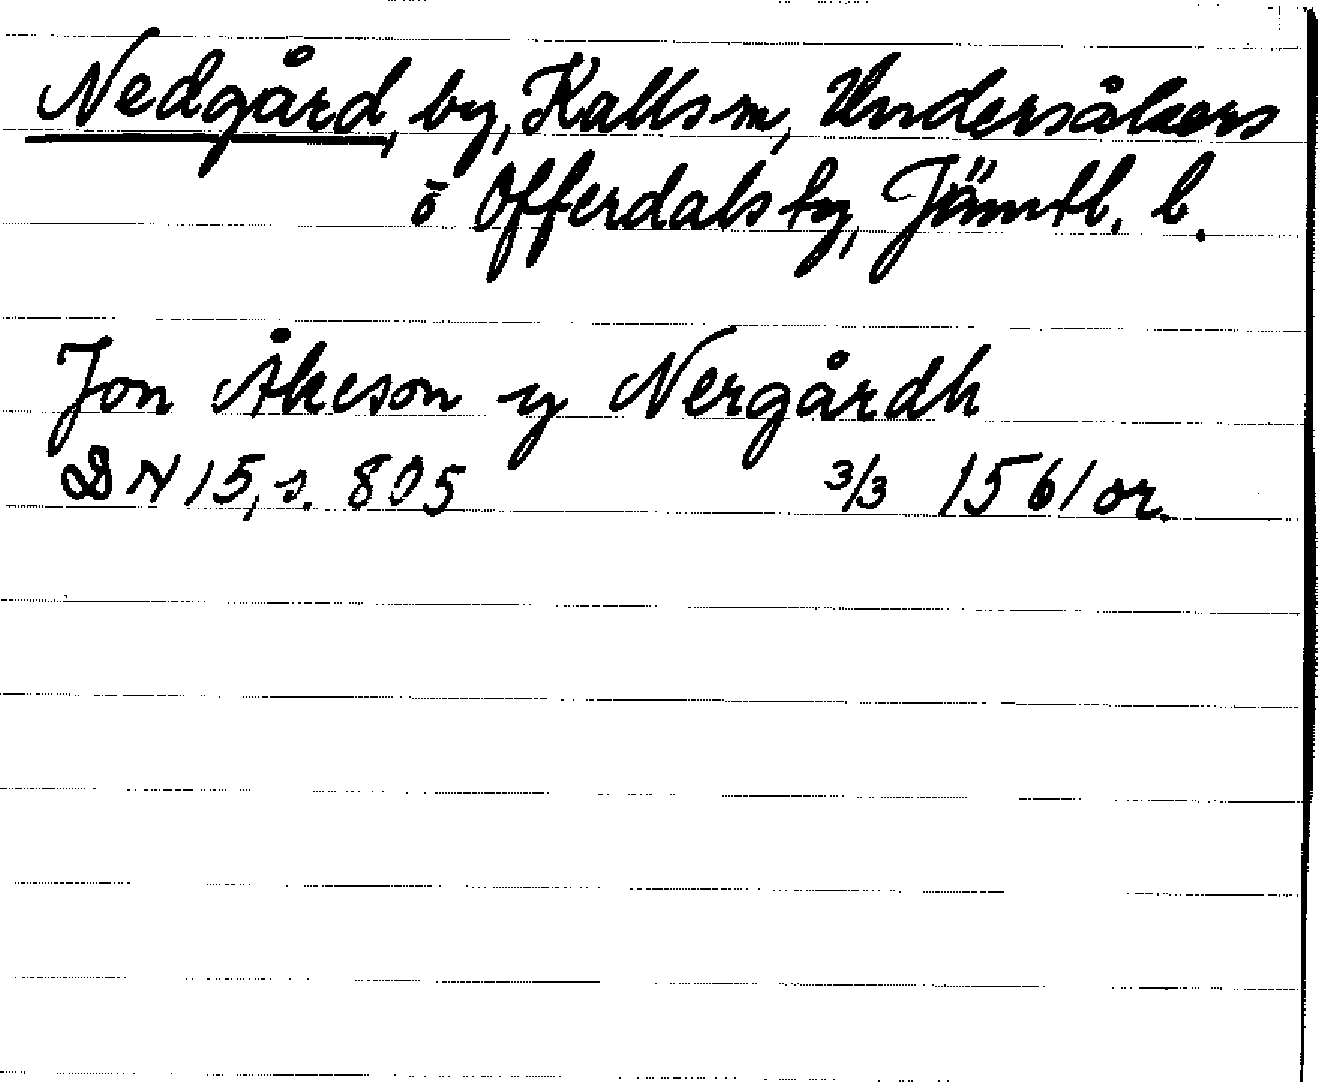 Nedgård, by, Kalls sn, Undersåkers
o Offerdals tg, Jämtl. l.
Jon Åkeson y Nergårdh
DN 15, s. 805 3/3 1561 or.